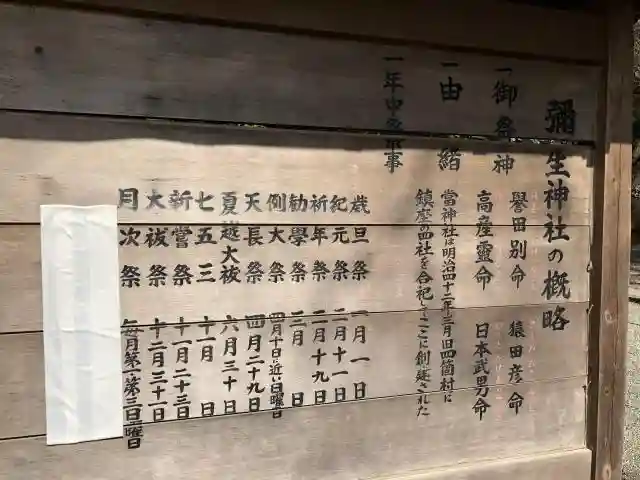 彌生神社の概略
一御祭神
譽田別命 猿田彦命
高産靈命 日本武男命
一由緒
當神社は明治四十二年三月旧四箇村に
鎮座の四社を合祀してここに創建された
一年中祭事
歳旦祭 一月一日
紀元祭 二月十一日
祈年祭 二月十九日
勧學祭 三月 日
例大祭 四月十日に近い日曜日
天長祭 四月二十九日
夏越大祓 六月三十日
七五三 十一月 日
新嘗祭 十一月二十三日
大祓祭 十二月三十一日
月次祭 毎月第一第三日曜日